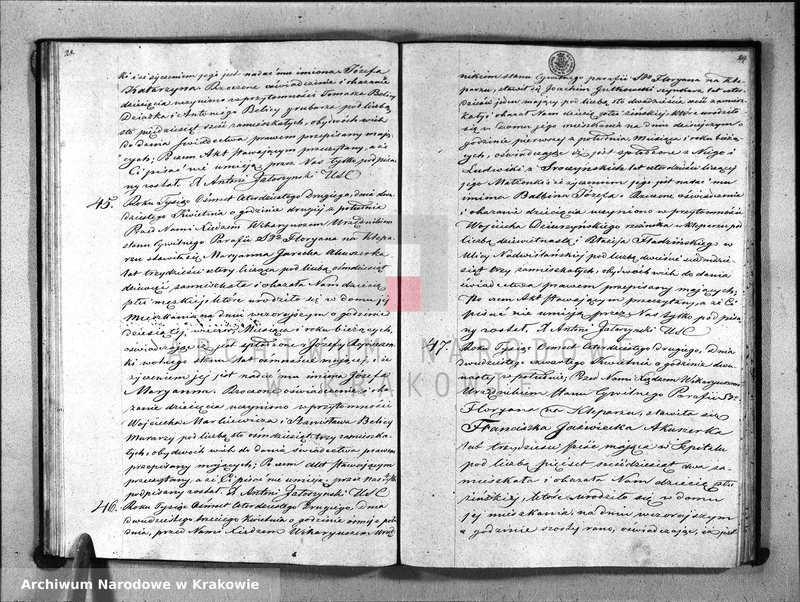 ki i życzeniem jego jest nadać mu imiona Józefa
Katarzyna Rzeczone oświadczenie i okazanie
dziecięcia uczyniono w przytomności Tomasza Belicy
Dziadka i Antoniego Belicy grabarza pod liczbą
sto pięćdziesiąt sześć zamieszkałych, obydwóch wieku
do dania świadectwa prawem przepisany mają-
cych; Po czem Akt stawającym przeczytany, a iż
Ci pisać nie umieją przez Nas tylko podpisa-
ny został. X Antoni Jatorzynski USC
45. Roku Tysiąc Ośmset Czterdziestego Drugiego, dnia dwu-
dziestego Kwietnia o godzinie drugiej z południa
Przed Nami Xiędzem Wikaryuszem Urzędnikiem
stanu Cywilnego Parafii Sgo Floryana na Klepa-
rzu stawiła się Maryanna Jarecka Akuszerka
lat trzydzieści cztery licząca pod liczbą ośmdziesiąt
dziewięć zamieszkała i okazała Nam dziecię
płci męzkiej, które urodziło się w domu jej
mieszkania na dniu wczorajszym o godzinie
dziesiątej wieczór Miesiąca i roku bieżących,
oświadczając iż jest spłodzone z Józefy
wolnego stanu lat ośmnaście mającej, i że
życzeniem jej jest nadać mu imiona Józefa
Maryanna. Rzeczone oświadczenie i oka-
zanie dziecięcia uczyniono w przytomności
Wojciecha Markiewicza i Stanisława Belicy
Murarzy pod liczbą sto ośmdziesiąt trzy zamieszka-
łych, obydwóch wiek do dania świadectwa prawem
przepisany mających; Po czem Akt stawającym
przeczytany, a iż Ci pisać nie umieją przez Nas tylko
podpisany został. X Antoni Jatorzynski USC
46. Roku Tysiąc Ośmset Czterdziestego Drugiego, dnia
dwudziestego trzeciego Kwietnia o godzinie ósmej z połu-
dnia, przed Nami Xiędzem Wikaryuszem Urzę-
24.
nikiem stanu Cywilnego parafii Sgo Floryana na Kle-
parzu, stawił się Joachim Gutkowski lat czter-
dzieści jeden mający pod liczbą sto dwadzieścia sześć zamiesz-
kały i okazał Nam dziecię płci żeńskiej, które urodziło
się w domu jego mieszkania na dniu dzisiejszym o
godzinie pierwszej z południa Miesiąca i roku bieżą-
cych, oświadczając iż jest spłodzone z Niego i
Ludwiki z lat czterdzieści liczącej
jego Małżonki i że życzeniem jego jest nadać mu
imiona Balbina Józefa. Rzeczone oświadczenie
i okazanie dziecięcia uczyniono w przytomności
Wojciecha rzeźnika w Kleparzu pod
liczbą dziewiętnastą i Błażeja Stadzińskiego w
Ulicy Nadwiślańskiej pod liczbą dwieście siedmdzie-
siąt trzy zamieszkałych, obydwóch wiek do dania
świadectwa prawem przepisany mających;
Po czem Akt stawającym przeczytany, a iż Ci
pisać nie umieją przez Nas tylko podpisa-
ny został. X Antoni Jatorzynski USC
47. Roku Tysiąc Ośmset Czterdziestego Drugiego, dnia
dwudziestego czwartego Kwietnia o godzinie dwu-
nastej z południa; Przed Nami Xiędzem Wikaryuszem
Urzędnikiem Stanu Cywilnego Parafii Sgo
Floryana na Kleparzu, stawiła się
Franciszka Jaźwiecka Akuszerka
lat trzydzieści pięć mająca w Szpitalu
pod liczbą pięćset sześćdziesiąt dwa za-
mieszkała i okazała Nam dziecię płci
żeńskiej, które urodziło się w domu
jej mieszkania, na dniu wczorajszym
o godzinie szóstej rano, oświadczając, iż jest
ARCHIWUM NARODOWE
W KRAKOWIE
Archiwum Narodowe w Krakowie